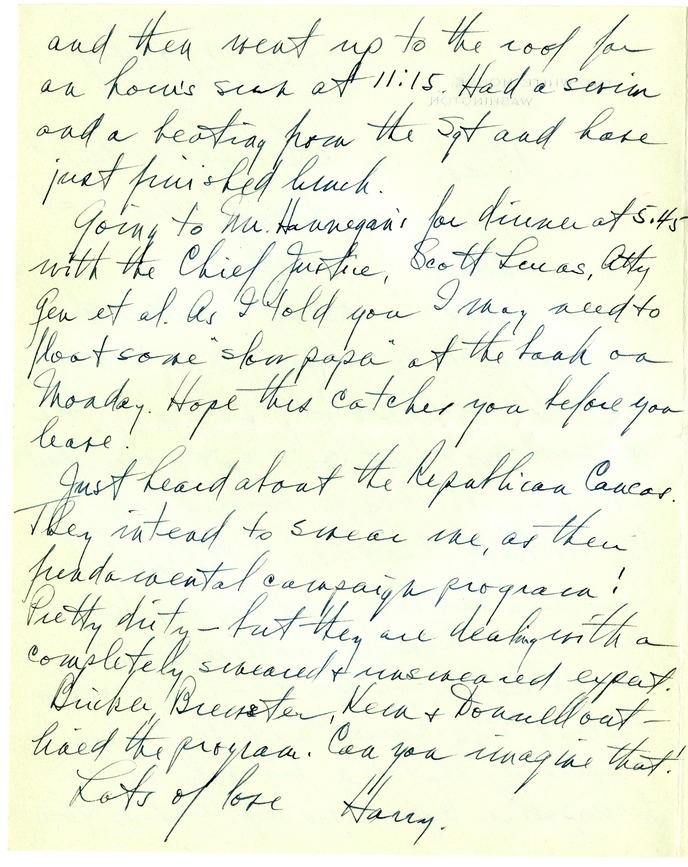 and then went up to the roof for
an hour's sun at 11:15. Had a swim
and a beating from the Sgt and have
just finished lunch.
Going to Mr. Hannegan's for dinner at 5:45
with the Chief Justice, Scott Lucas, Atty
Gen et al. As I told you I may need to
float some "slow papa" at the bank on
Monday. Hope this catches you before you
leave.
Just heard about the Republican Caucas.
They intend to smear me, as their
fundamental campaign program!
Pretty dirty - but they are dealing with a
completely smeared & unsmeared expert.
Bricker, Brewster, Kem & Donnell out-
lined the program. Can you imagine that!
Lots of love Harry.
WASHINGTON